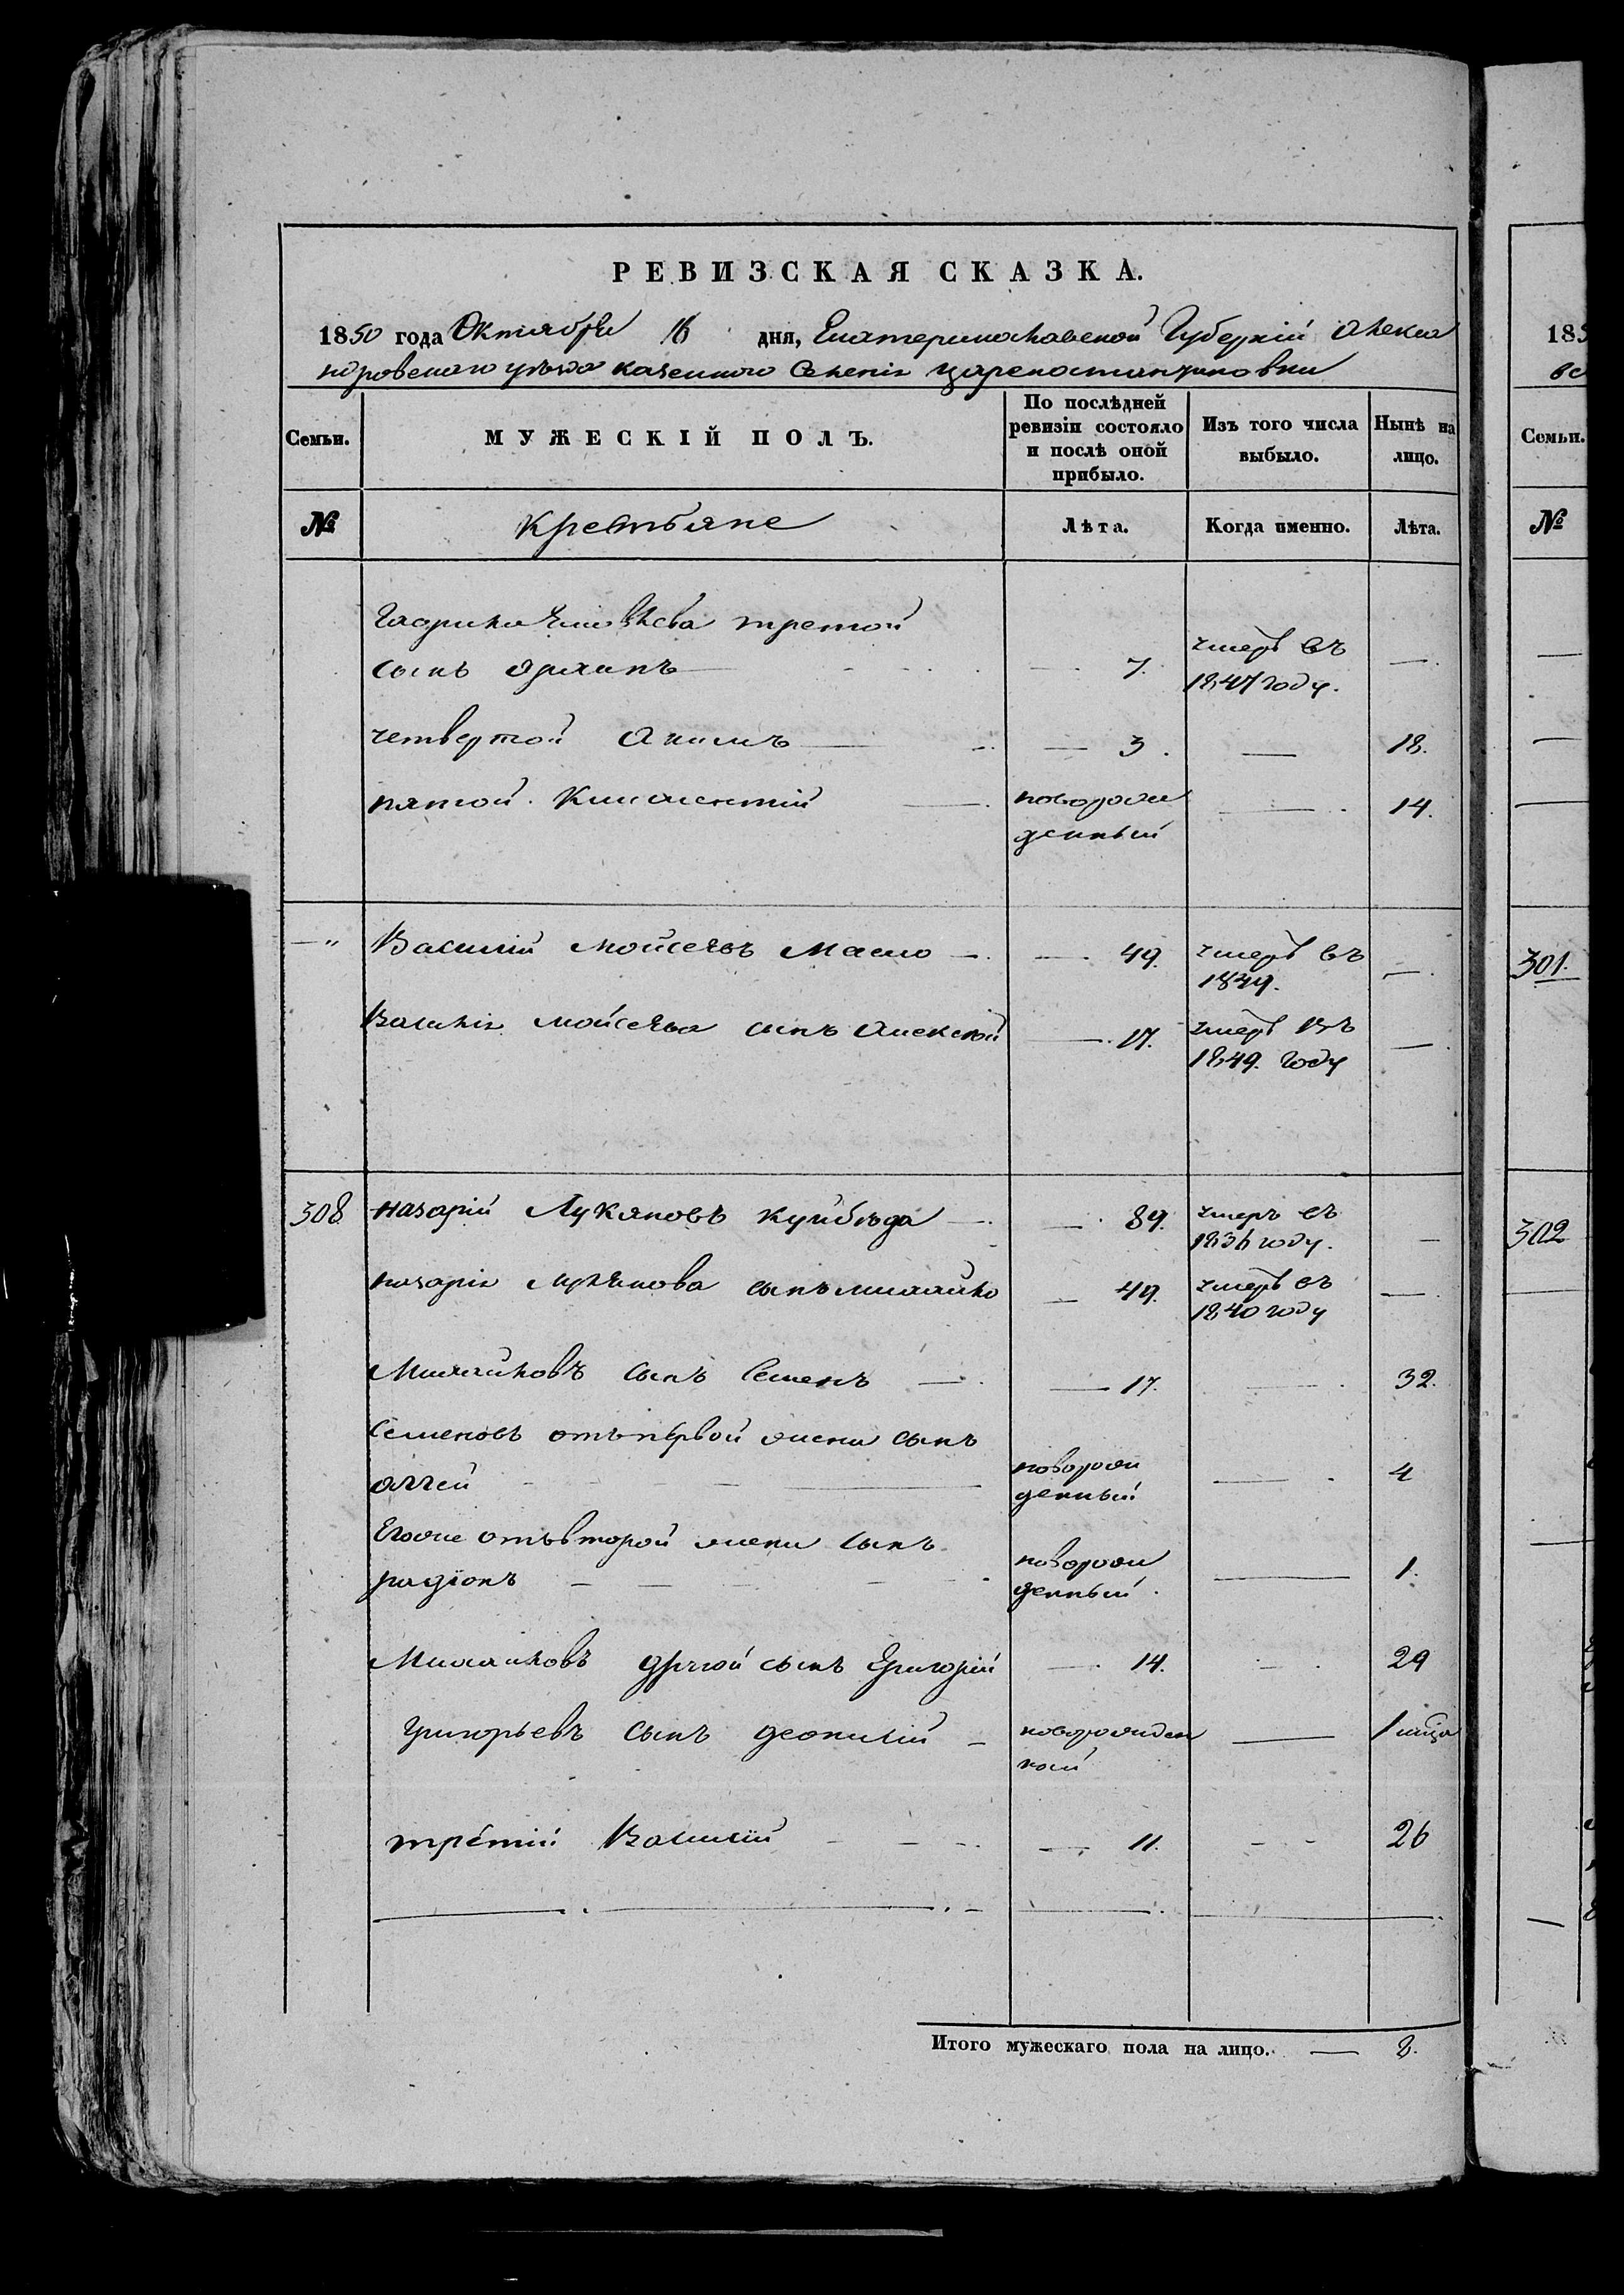 РЕВИЗСКАЯ СКАЗКА.
1850 года Октября 16 дня, Екатеринославской Губерніи Алекса
ндровскаго уѣзда казеннаго Селенія Цареконстантиновки
Семьи.
МУЖЕСКІЙ ПОЛЪ.
По послѣдней
ревизіи состояло
и послѣ оной
прибыло.
Изъ того числа
выбыло.
Нынѣ на
лицо.
№
Крестьяне
Лѣта.
Когда именно.
Лѣта.
Гаврила третой
сынъ — 7. умеръ въ —
1847 году.
четвертой Акимъ — 3. — 18.
пятой Климентій — новорож — 14.
денный
— " Василій Мойсеевъ Масло — 49. умеръ въ —
1849.
Василія Мойсеева сынъ Алексей — 17. умеръ въ —
1849. году
308 Назарій Лукяновъ Куйбѣда — 89. умеръ въ —
1836 году.
Назарія Лукянова сынъ Михайло — 49. умеръ въ —
1840 году
Михайловъ сынъ Семенъ — 17. — 32.
Семеновъ отъ первой жены сынъ
новорож — 4
денный
Егоже отъ второй жены сынъ
радіонъ — новорож — 1.
денный.
Михайловъ другой сынъ Григорій — 14. — 29
Григорьевъ сынъ — новорожден — 1
ной
третій Василій — 11. — 26
Итого мужескаго пола на лицо. — 8.
185
Семьи.
№
301.
302